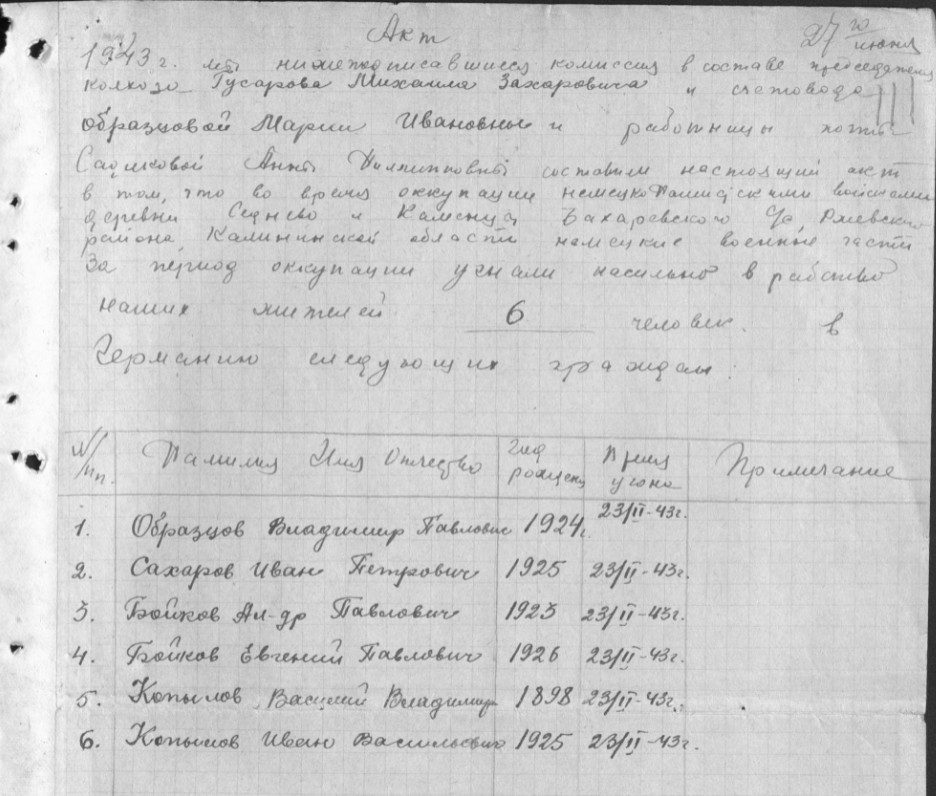 Акт
27го июня
1943 г. мы нижеподписавшиеся комиссия в составе председателя
колхоза Гусарова Михаила Захаровича и счетовода
Образцовой Марии Ивановны и работницы
Анны составили настоящий акт
в том, что во время оккупации немецко фашискими войсками
деревни и Каменца, Ржевского
района, Калининской области немецкие военные части
За период оккупации угнали насильно в рабство
наших жителей 6 человек. в
Германию следующих граждан:
N/пп. Фамилия Имя Отчество Год рождения Время угона Примечание
1. Образцов Владимир Павлович 1924г. 23/II-43г.
2. Сахаров Иван Петрович 1925 23/II-43г.
3. Бойков Ал-др Павлович 1923 23/II-43г.
4. Бойков Евгений Павлович 1926 23/II-43г.
5. Копылов Василий Владимир 1898 23/II-43г.
6. Копылов Иван Васильевич 1925 23/II-43г.